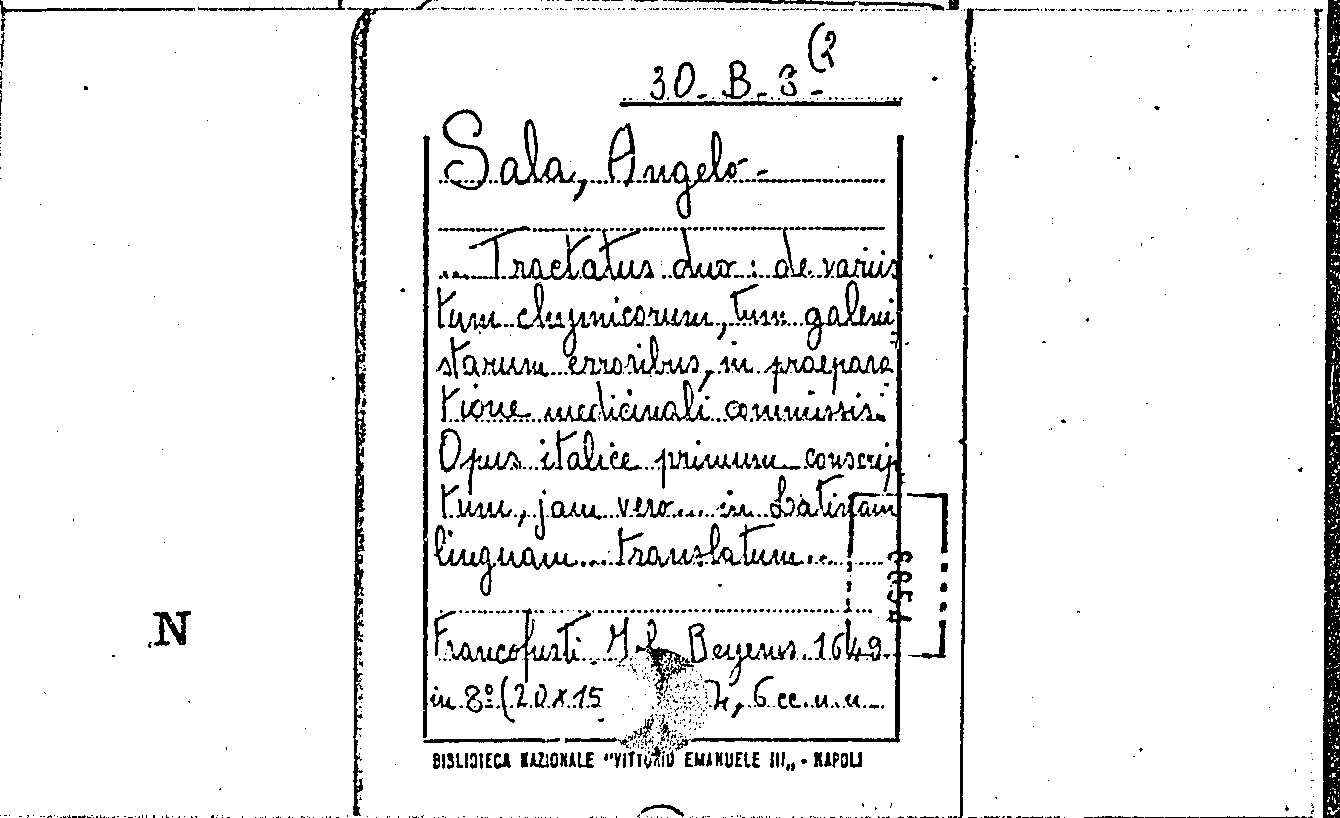 30. B. 3 (2
Sala, Angelo -
... Tractatus duo : de variis
tum chymicorum, tum galeni
starum erroribus, in praepara
tione medicinali commissis.
Opus italice primum conscrip
tum, jam vero... in Latinam
linguam... translatum...
Francofurti. Beyerus. 1649
in 8º (20 x 15 6 cc. n. n.
N
BIBLIOTECA NAZIONALE "VITTORIO EMANUELE III„ - NAPOLI